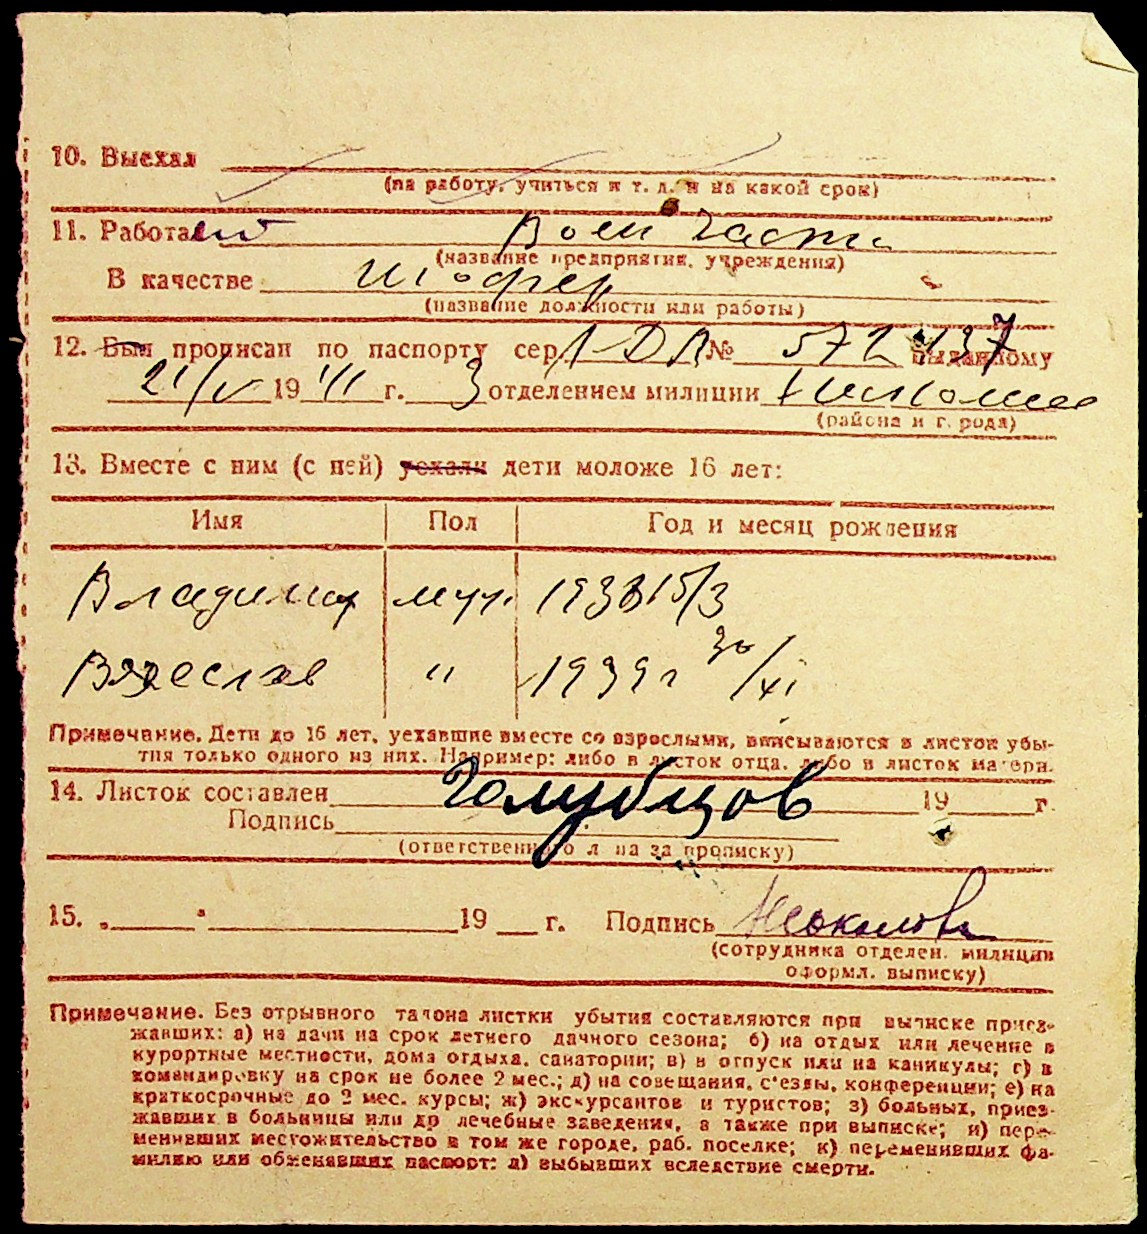 10. Выехал
(на работу, учиться и т. д. и на какой срок)
11. Работает Воен части
(название предприятия, учреждения)
В качестве шофер
(название должности или работы)
12. Был прописан по паспорту сер. № 572437 выданному
21/V 1941 г. 3 отделением милиции
(района и города)
13. Вместе с ним (с ней) уехали дети моложе 16 лет:
Имя Пол Год и месяц рождения
Владимир муж. 15/3
Вячеслав " 1939 г 30/XI
Примечание. Дети до 16 лет, уехавшие вместе со взрослыми, вписываются в листок убы-
тия только одного из них. Например: либо в листок отца, либо в листок матери.
14. Листок составлен 19 г.
Голубцов
Подпись
(ответственного лица за прописку)
15. „ " 19 г. Подпись
(сотрудника отделен. милиции
оформл. выписку)
Примечание. Без отрывного талона листки убытия составляются при выписке приез-
жавших: а) на дачи на срок летнего дачного сезона; б) на отдых или лечение в
курортные местности, дома отдыха, санатории; в) в отпуск или на каникулы; г) в
командировку на срок не более 2 мес.; д) на совещания, с'езды, конференции; е) на
краткосрочные до 2 мес. курсы; ж) экскурсантов и туристов; з) больных, приез-
жавших в больницы или др лечебные заведения, а также при выписке; и) пере-
менивших местожительство в том же городе, раб. поселке; к) переменивших фа-
милию или обменявших паспорт; л) выбывших вследствие смерти.